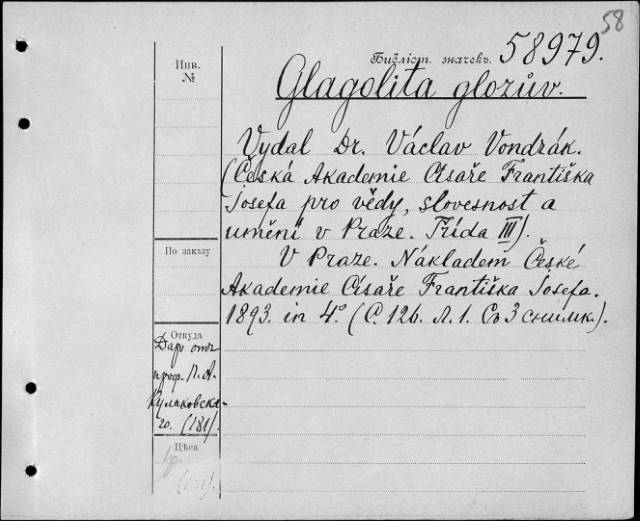 58
Библіот. значекъ. 58979.
Инв.
№
Glagolita glozův.
Vydal Dr. Václav Vondrák.
(Česká Akademie Císaře Františka
Josefa pro vědy, slovesnost a
umění v Praze. Třída III).
V Praze. Nákladem České
Akademie Císaře Františka Josefa.
1893. in 4º. (С. 126. Л. 1. Съ 3 снимк.).
По заказу
Откуда
Даръ отъ
проф. П. А.
Кулаковска-
го. (181).
Цѣна